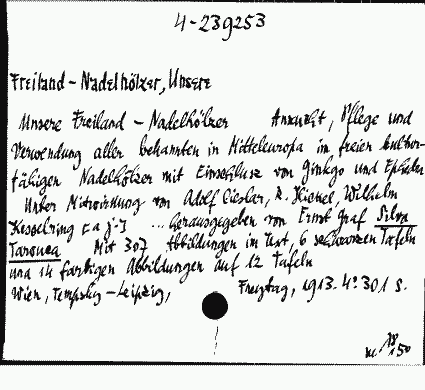 4-239253
Freiland - Nadelhölzer, Unsere
Unsere Freiland - Nadelhölzer Anzucht, Pflege und
Verwendung aller bekannten in Mitteleuropa im freien kultur-
fähigen Nadelhölzer mit Einschluss von Ginkgo und Ephedra
Unter Mitwirkung von Adolf Cieslar, R. Hickel, Wilhelm
Kesselring ... herausgegeben von Ernst Graf Silva
Tarouca Mit 307 Abbildungen im Text, 6 schwarzen Tafeln
und 14 farbigen Abbildungen auf 12 Tafeln
Wien, Tempsky - Leipzig, Freytag, 1913. 4º. 301 S.